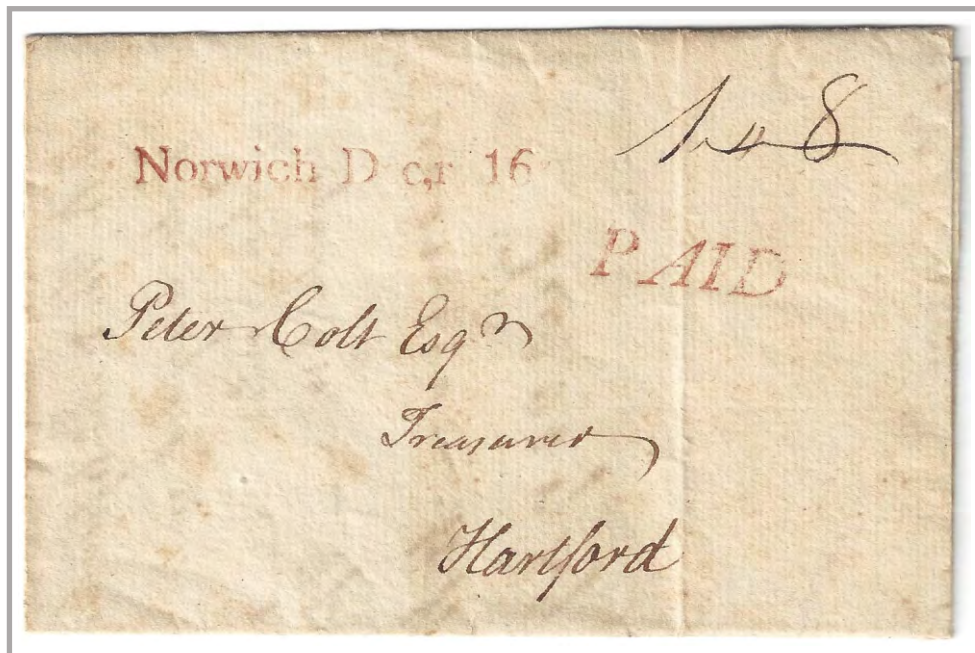 1..8
Norwich D c,r 16
PAID
Peter Colt Esqr
Treasurer
Hartford